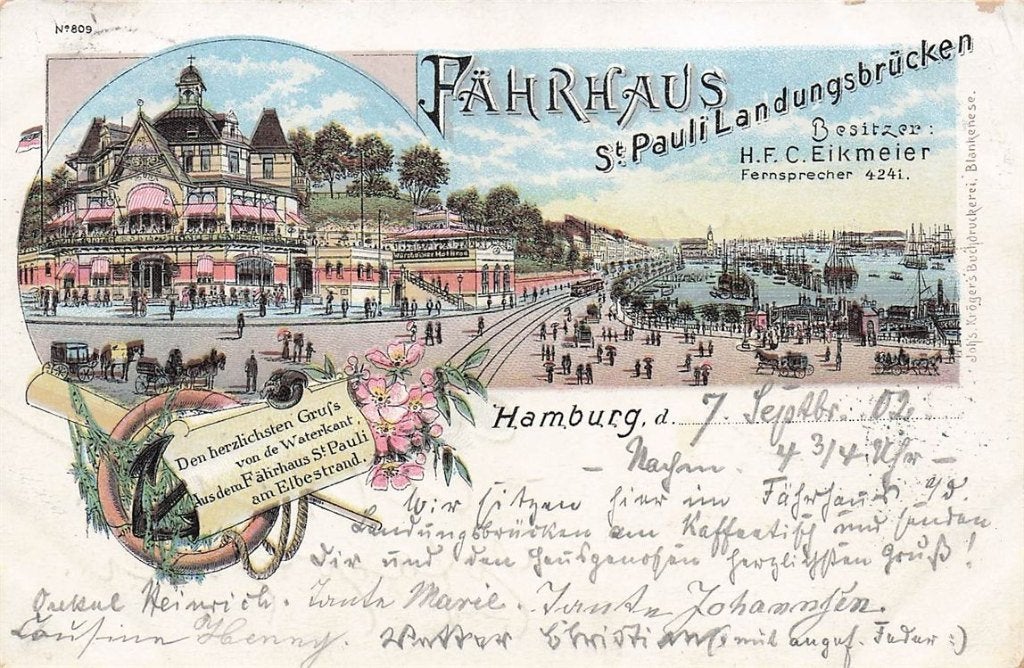 No 809
FÄHRHAUS
St. Pauli Landungsbrücken
Besitzer:
H.F.C. Eikmeier
Fernsprecher 4241.
Johs. Kröger's Buchdruckerei, Blankenese.
Den herzlichsten Gruss
von de Waterkant,
Aus dem Fährhaus St Pauli
am Elbestrand.
Hamburg, d. 7. Septbr. 02
– Nachm. 4 3/4 Uhr –
Wir sitzen hier im Fährhaus a/d.
Landungsbrücken am Kaffeetisch und senden
Dir und den Hausgenossen herzlichsten Gruß!
Onkel Heinrich. Tante Marie. Tante Johannsen.
Cousine Henny. Vetter Christian (: mit angef. Feder :)